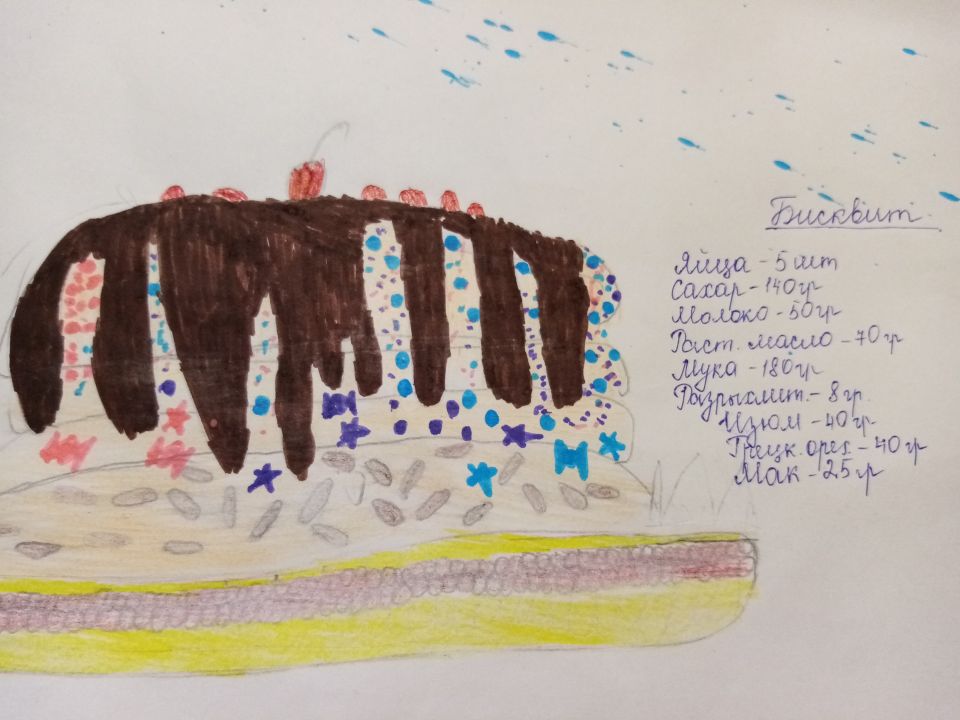 Бисквит
Яйца - 5 шт
Сахар - 140 гр
Молоко - 50 гр
Раст. масло - 70 гр
Мука - 180 гр
Разрыхлит. - 8 гр.
Изюм - 40 гр
Грецк. орех - 40 гр
Мак - 25 гр